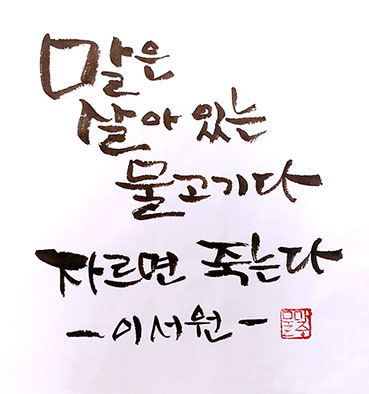 말은
살아 있는
물고기다
자르면 죽는다
-이서원-